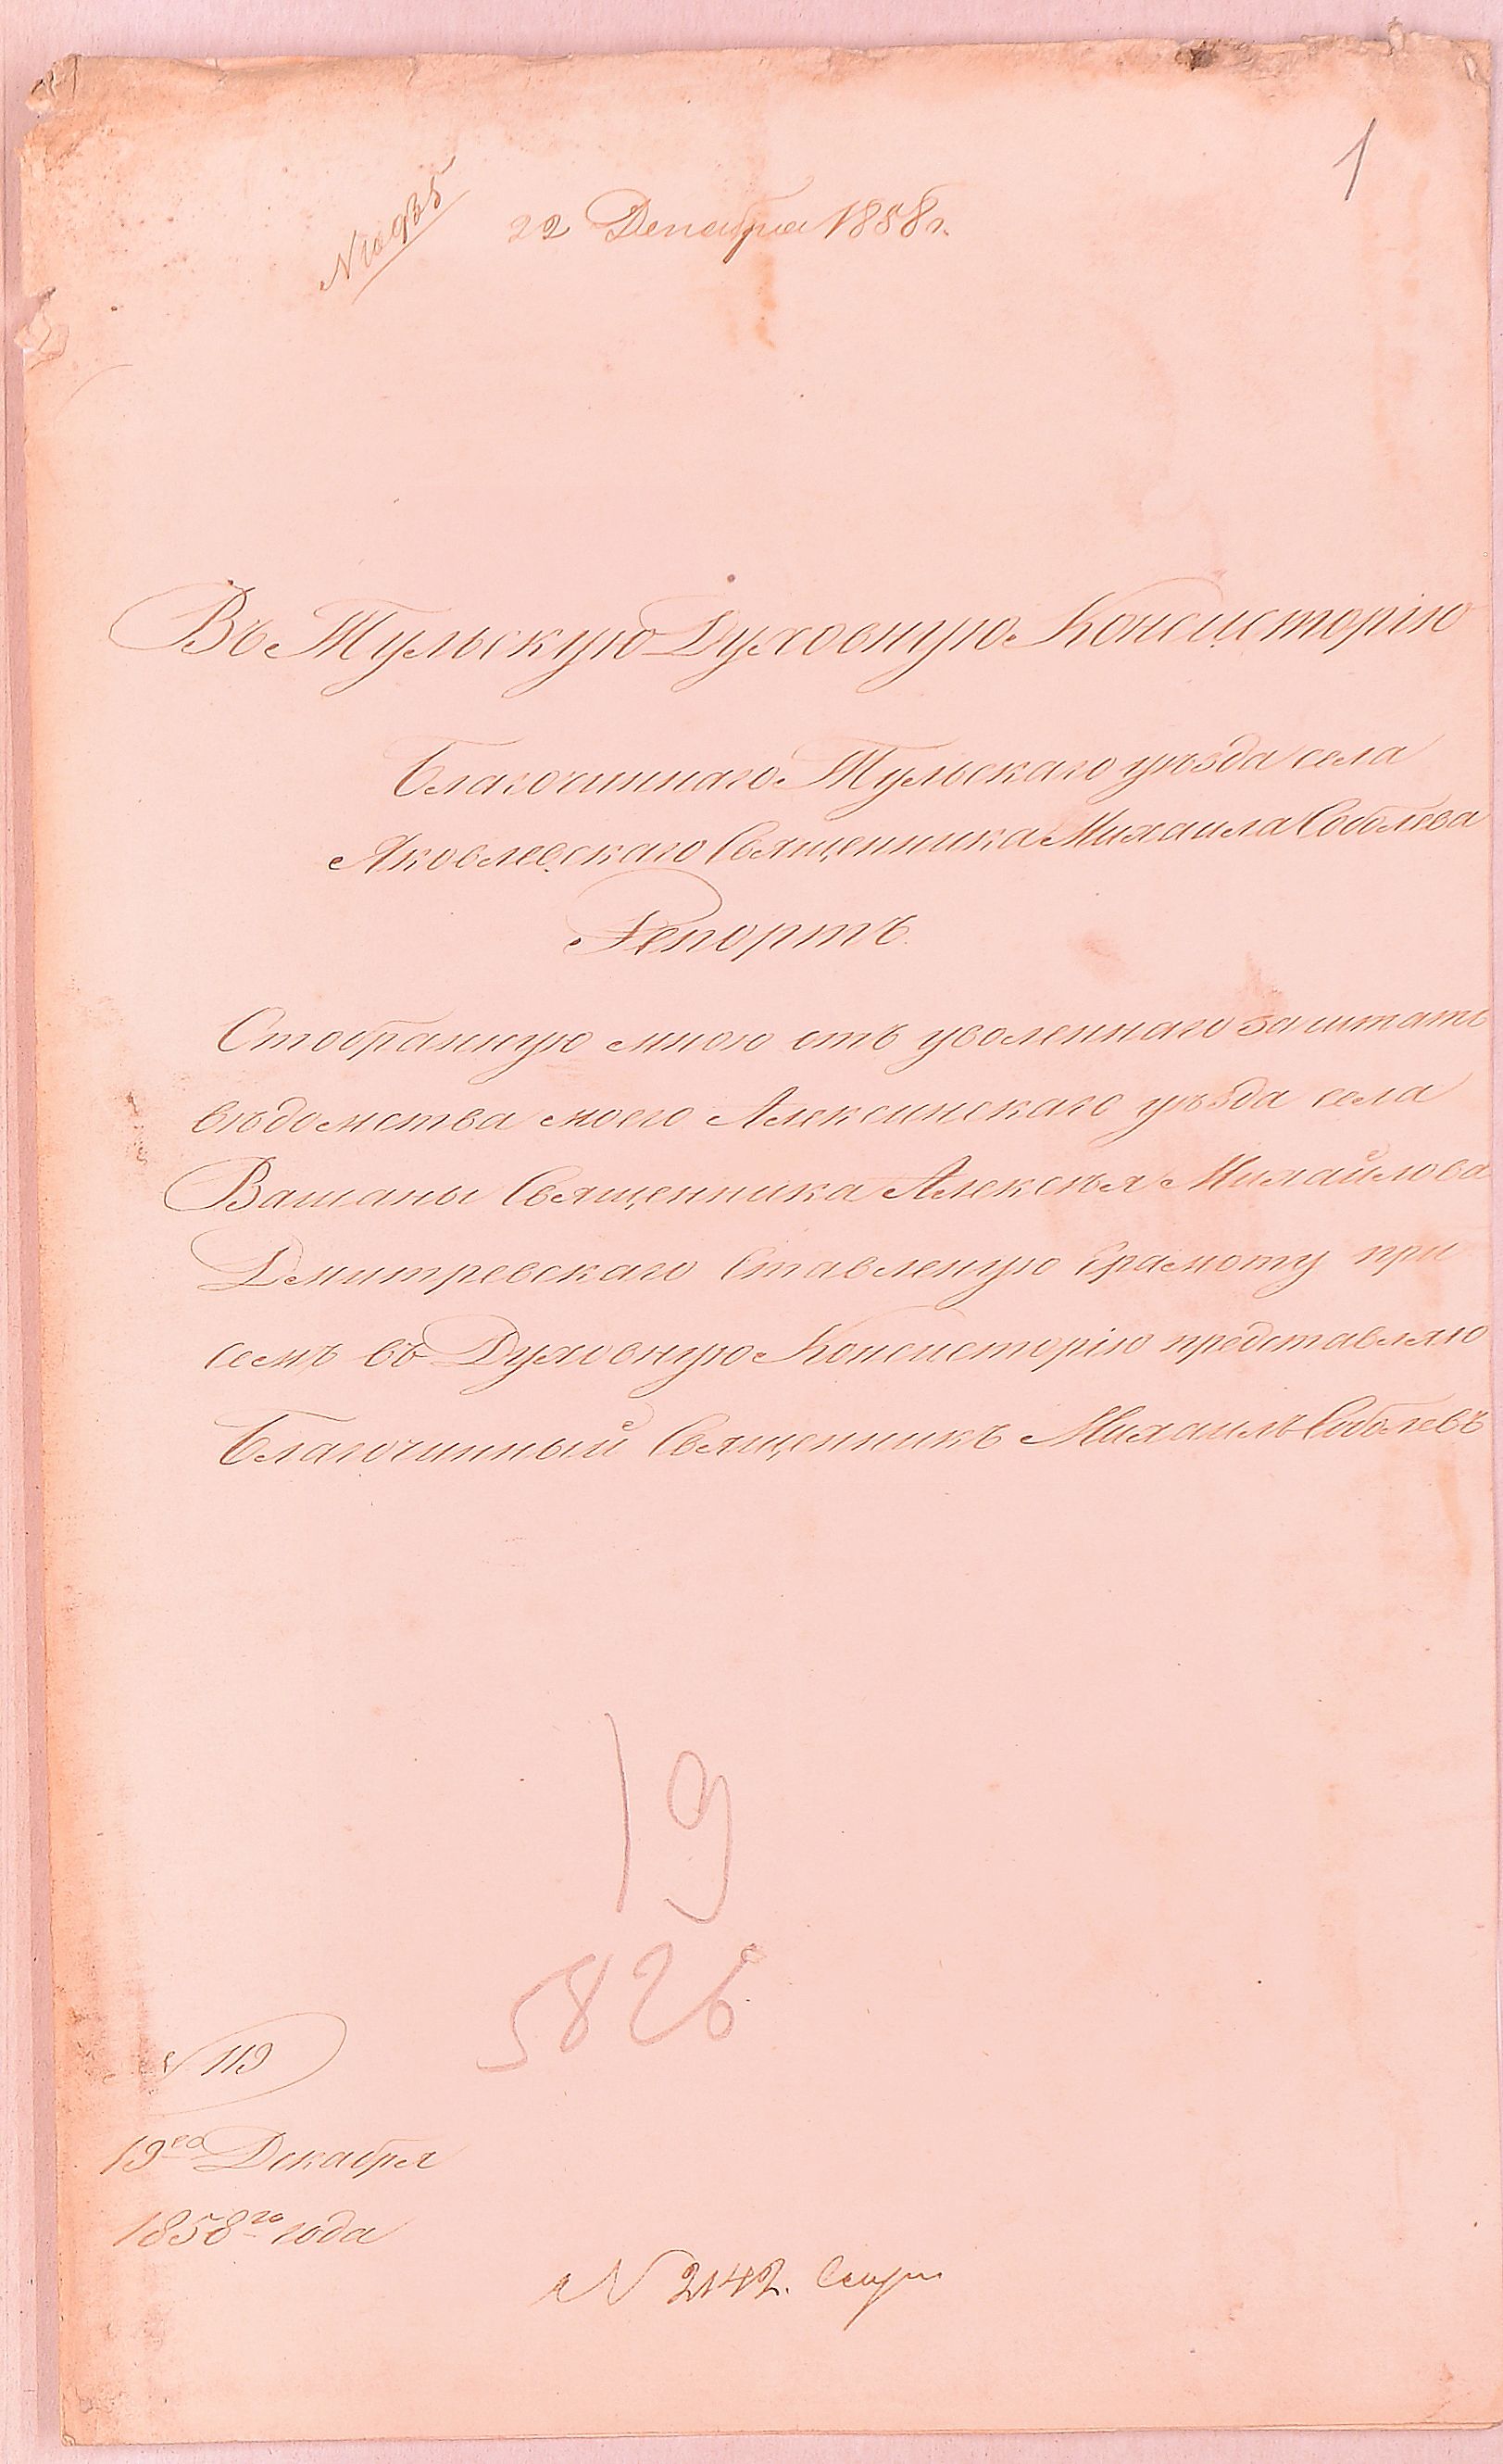 1
N 10935
22 Декабря 1858 г.
Въ Тульскую Духовную Консисторію
Благочиннаго Тульскаго уѣзда села
Яковлевскаго Священника Михаила Соболева
Репортъ.
Отобранную мною отъ уволеннаго за штатъ
вѣдомства моего Алексинскаго уѣзда села
Вашаны Священника Алексѣя Михайлова
Дмитревскаго Ставленую Грамоту при
семъ въ Духовную Консисторію представляю
Благочинный Священникъ Михаилъ Соболевъ
19
5826
N 119
19го Декабря
1858го года
N 2142.